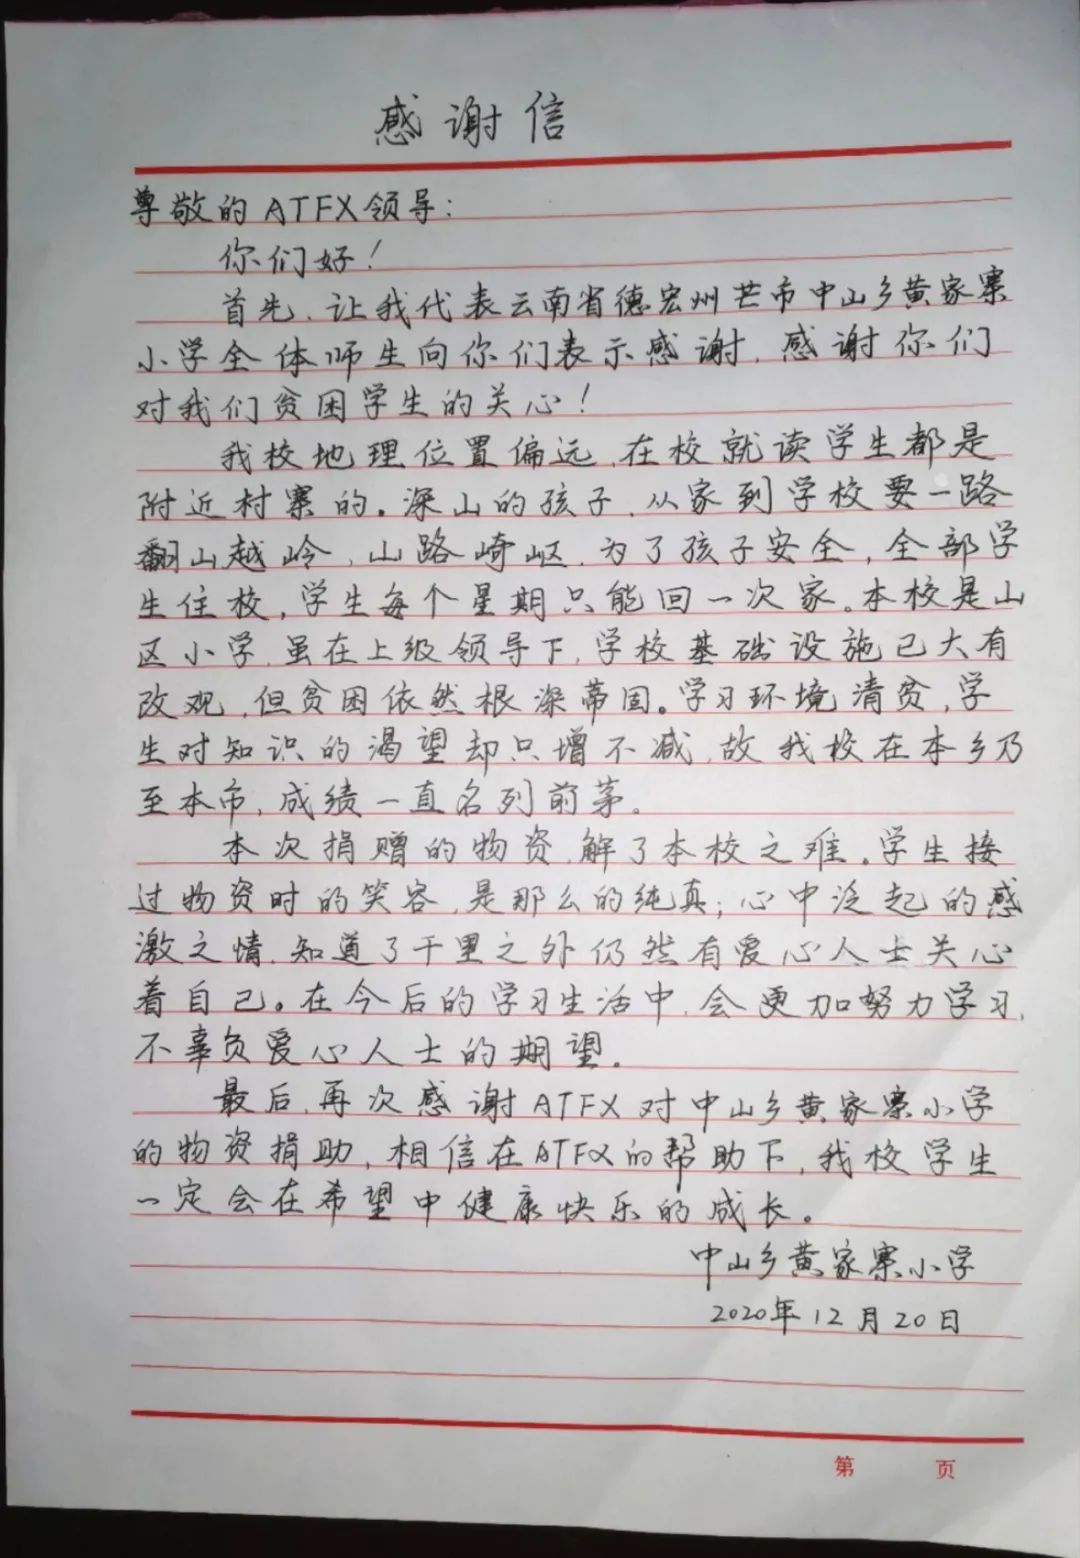 感谢信
尊敬的ATFX领导:
你们好!
首先,让我代表云南省德宏州芒市中山乡黄家寨
小学全体师生向你们表示感谢,感谢你们
对我们贫困学生的关心!
我校地理位置偏远,在校就读学生都是
附近村寨的。深山的孩子,从家到学校要一路
翻山越岭,山路崎岖,为了孩子安全,全部学
生住校,学生每个星期只能回一次家。本校是山
区小学,虽在上级领导下,学校基础设施已大有
改观,但贫困依然根深蒂固。学习环境清贫,学
生对知识的渴望却只增不减,故我校在本乡乃
至本市,成绩一直名列前茅。
本次捐赠的物资,解了本校之难。学生接
过物资时的笑容,是那么的纯真;心中泛起的感
激之情,知道了千里之外仍然有爱心人士关心
着自己。在今后的学习生活中,会更加努力学习,
不辜负爱心人士的期望。
最后,再次感谢ATFX对中山乡黄家寨小学
的物资捐助,相信在ATFX的帮助下,我校学生
一定会在希望中健康快乐的成长。
中山乡黄家寨小学
2020年12月20日
第 页